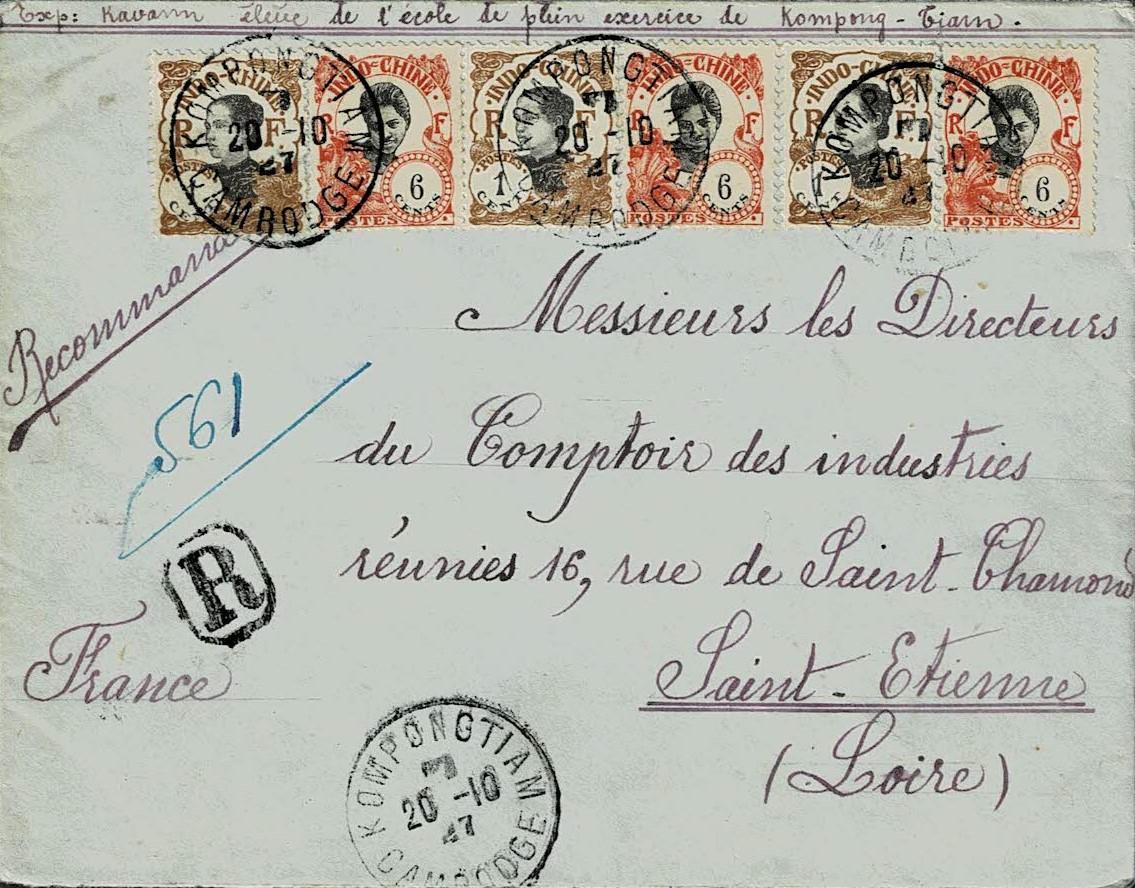 Exp: Kavann élève de l'école de plein exercice de Kompong-Tiam.
INDO-CHINE INDO-CHINE INDO-CHINE INDO-CHINE INDO-CHINE INDO-CHINE
R F R F R F R F R F R F
1 CENT 6 CENTS 1 CENT 6 CENTS 1 CENT 6 CENTS
POSTES POSTES POSTES POSTES POSTES POSTES
KOMPONGTIAM
20 -10
27
CAMBODGE
KOMPONGTIAM
20 -10
27
CAMBODGE
KOMPONGTIAM
20 -10
CAMBODGE
Recommandé
Messieurs les Directeurs
561
du Comptoir des industries
réunies 16, rue de Saint-Chamond
R
France
Saint-Etienne
(Loire)
KOMPONGTIAM
20 -10
27
CAMBODGE